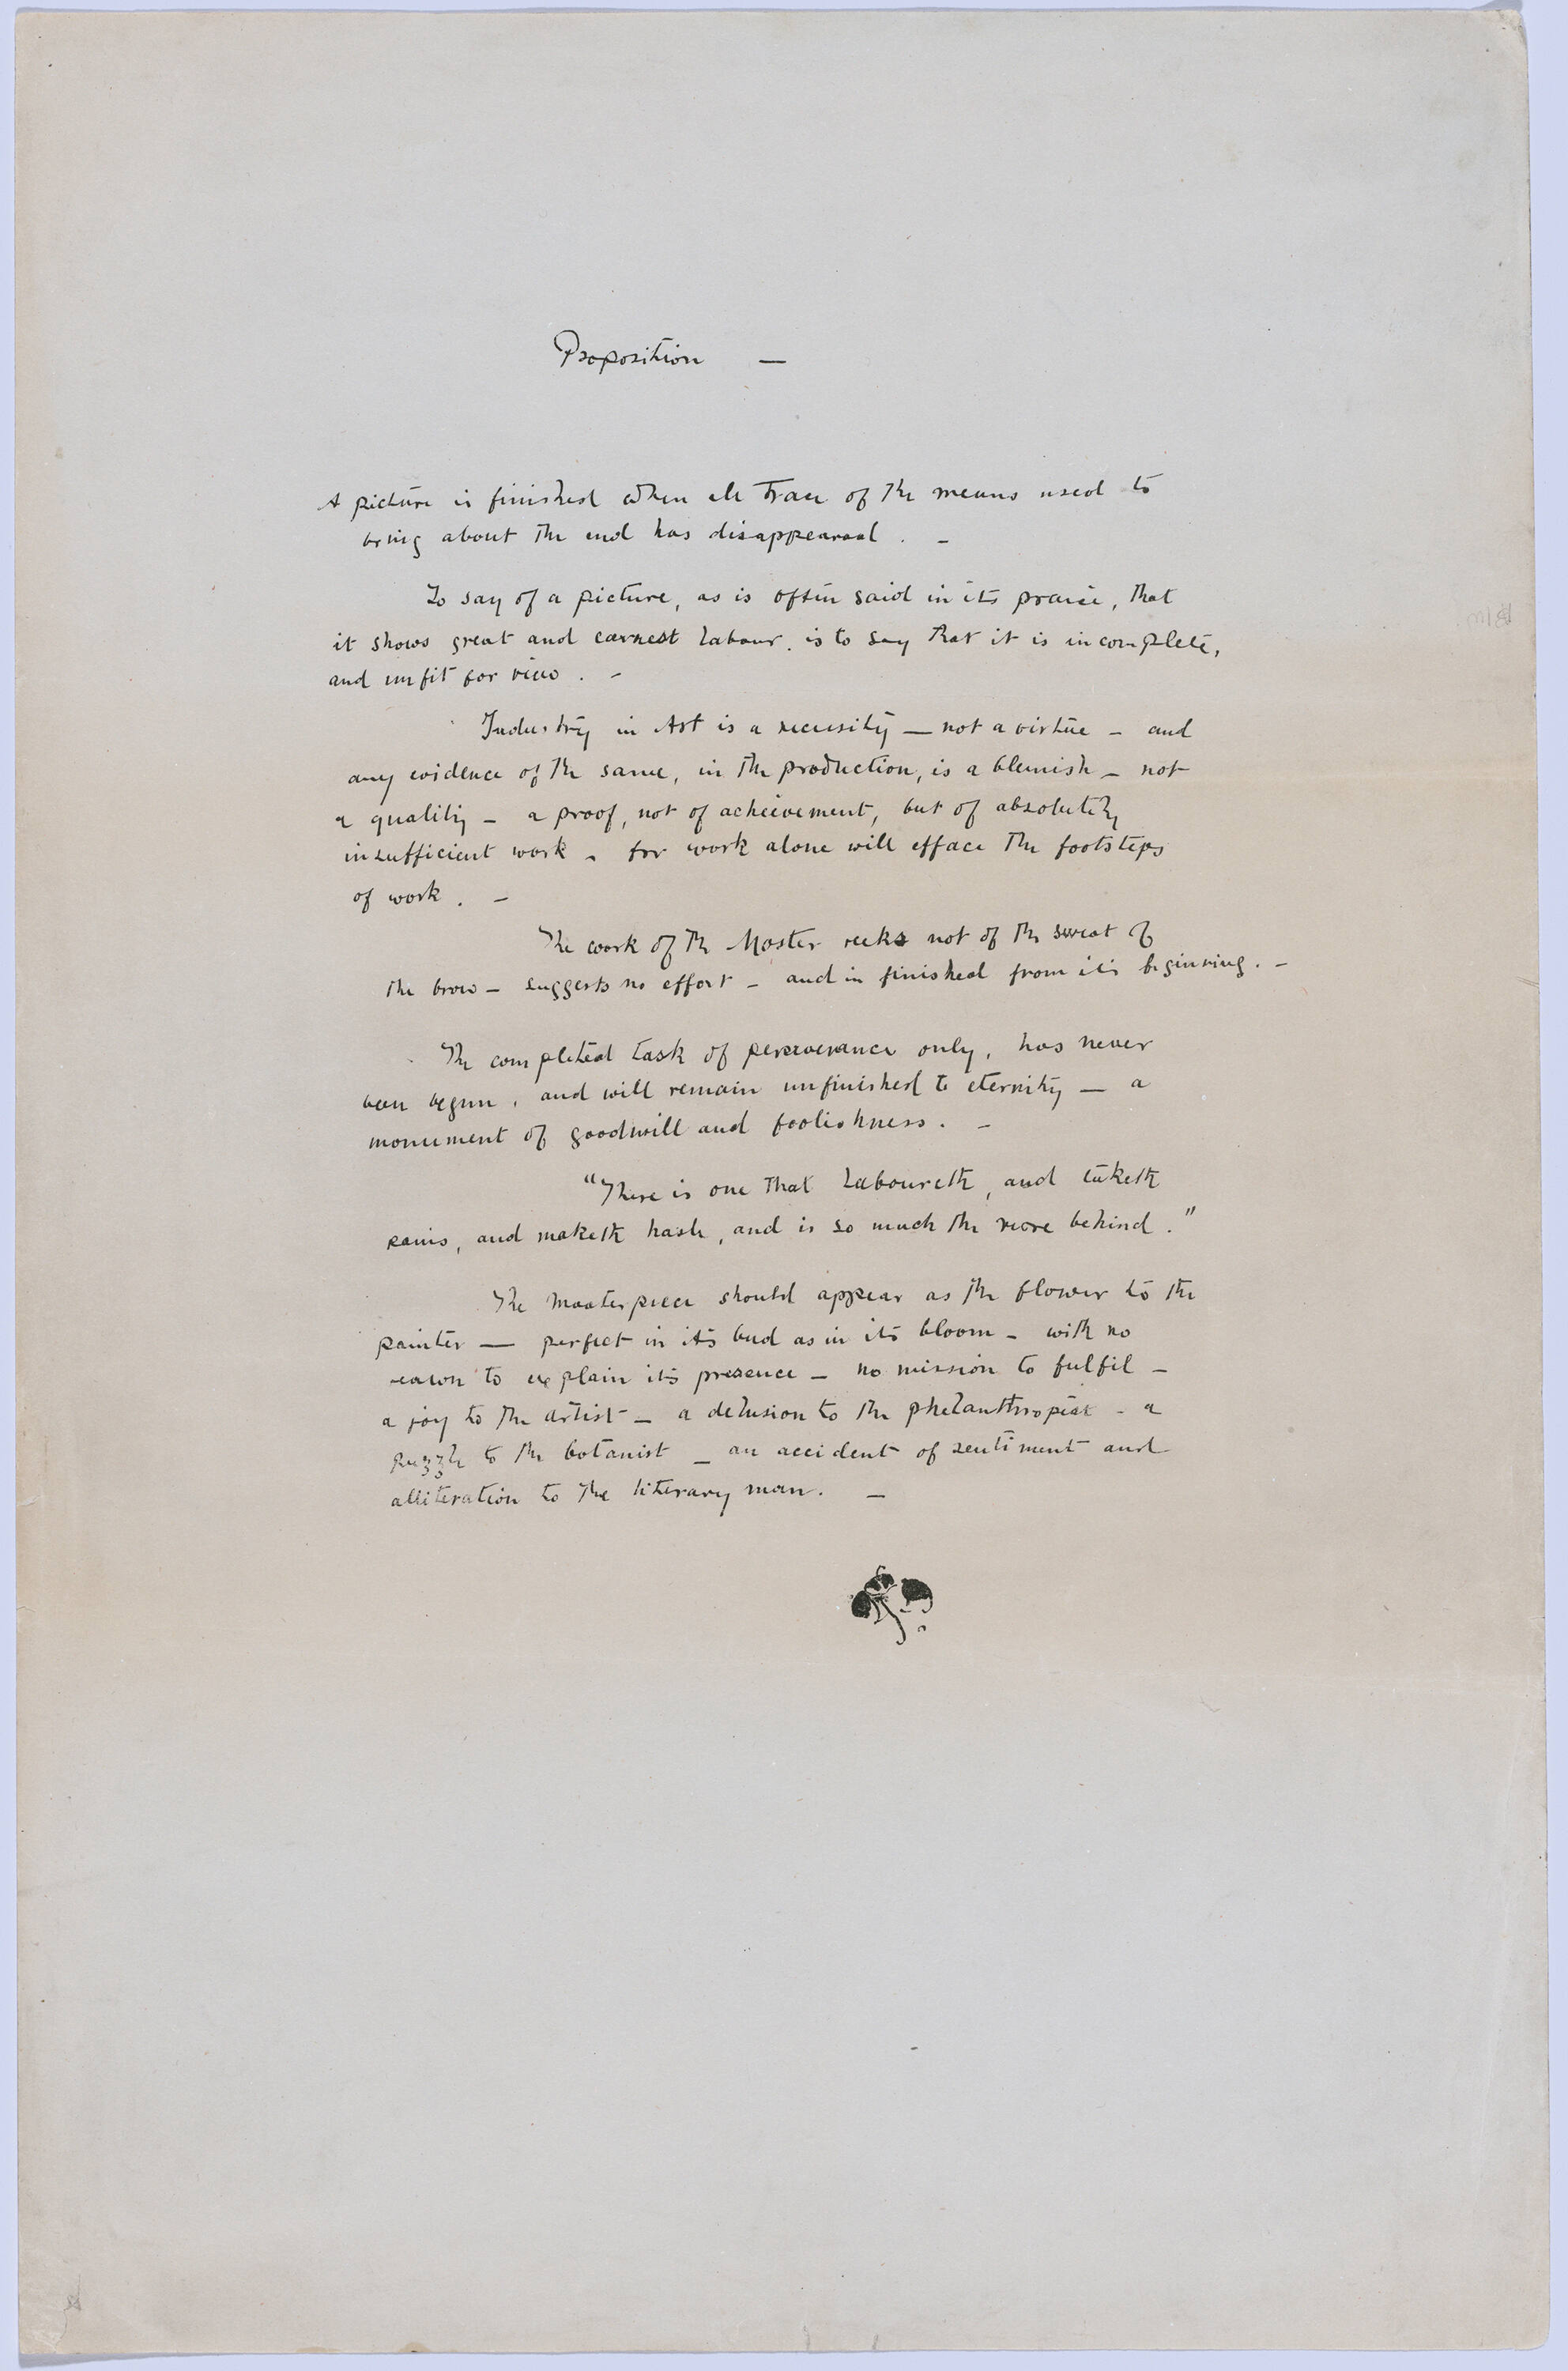 Proposition —
A picture is finished when all trace of the means used to
bring about the end has disappeared . —
To say of a picture, as is often said in its praise, that
it shows great and earnest labour, is to say that it is incomplete,
and unfit for view . —
Industry in Art is a necessity — not a virtue — and
any evidence of the same, in the production, is a blemish — not
a quality — a proof, not of acheivement, but of absolutely
insufficient work — for work alone will efface the footsteps
of work . —
The work of the Master reeks not of the sweat of
the brow — suggests no effort — and is finished from its beginning . —
The completed task of perseverance only, has never
been begun, and will remain unfinished to eternity — a
monument of goodwill and foolishness . —
"There is one that laboureth, and taketh
pains, and maketh haste, and is so much the more behind."
The masterpiece should appear as the flower to the
painter — perfect in its bud as in its bloom — with no
reason to explain its presence — no mission to fulfil —
a joy to the artist — a delusion to the philanthropist — a
puzzle to the botanist — an accident of sentiment and
alliteration to the literary man. —